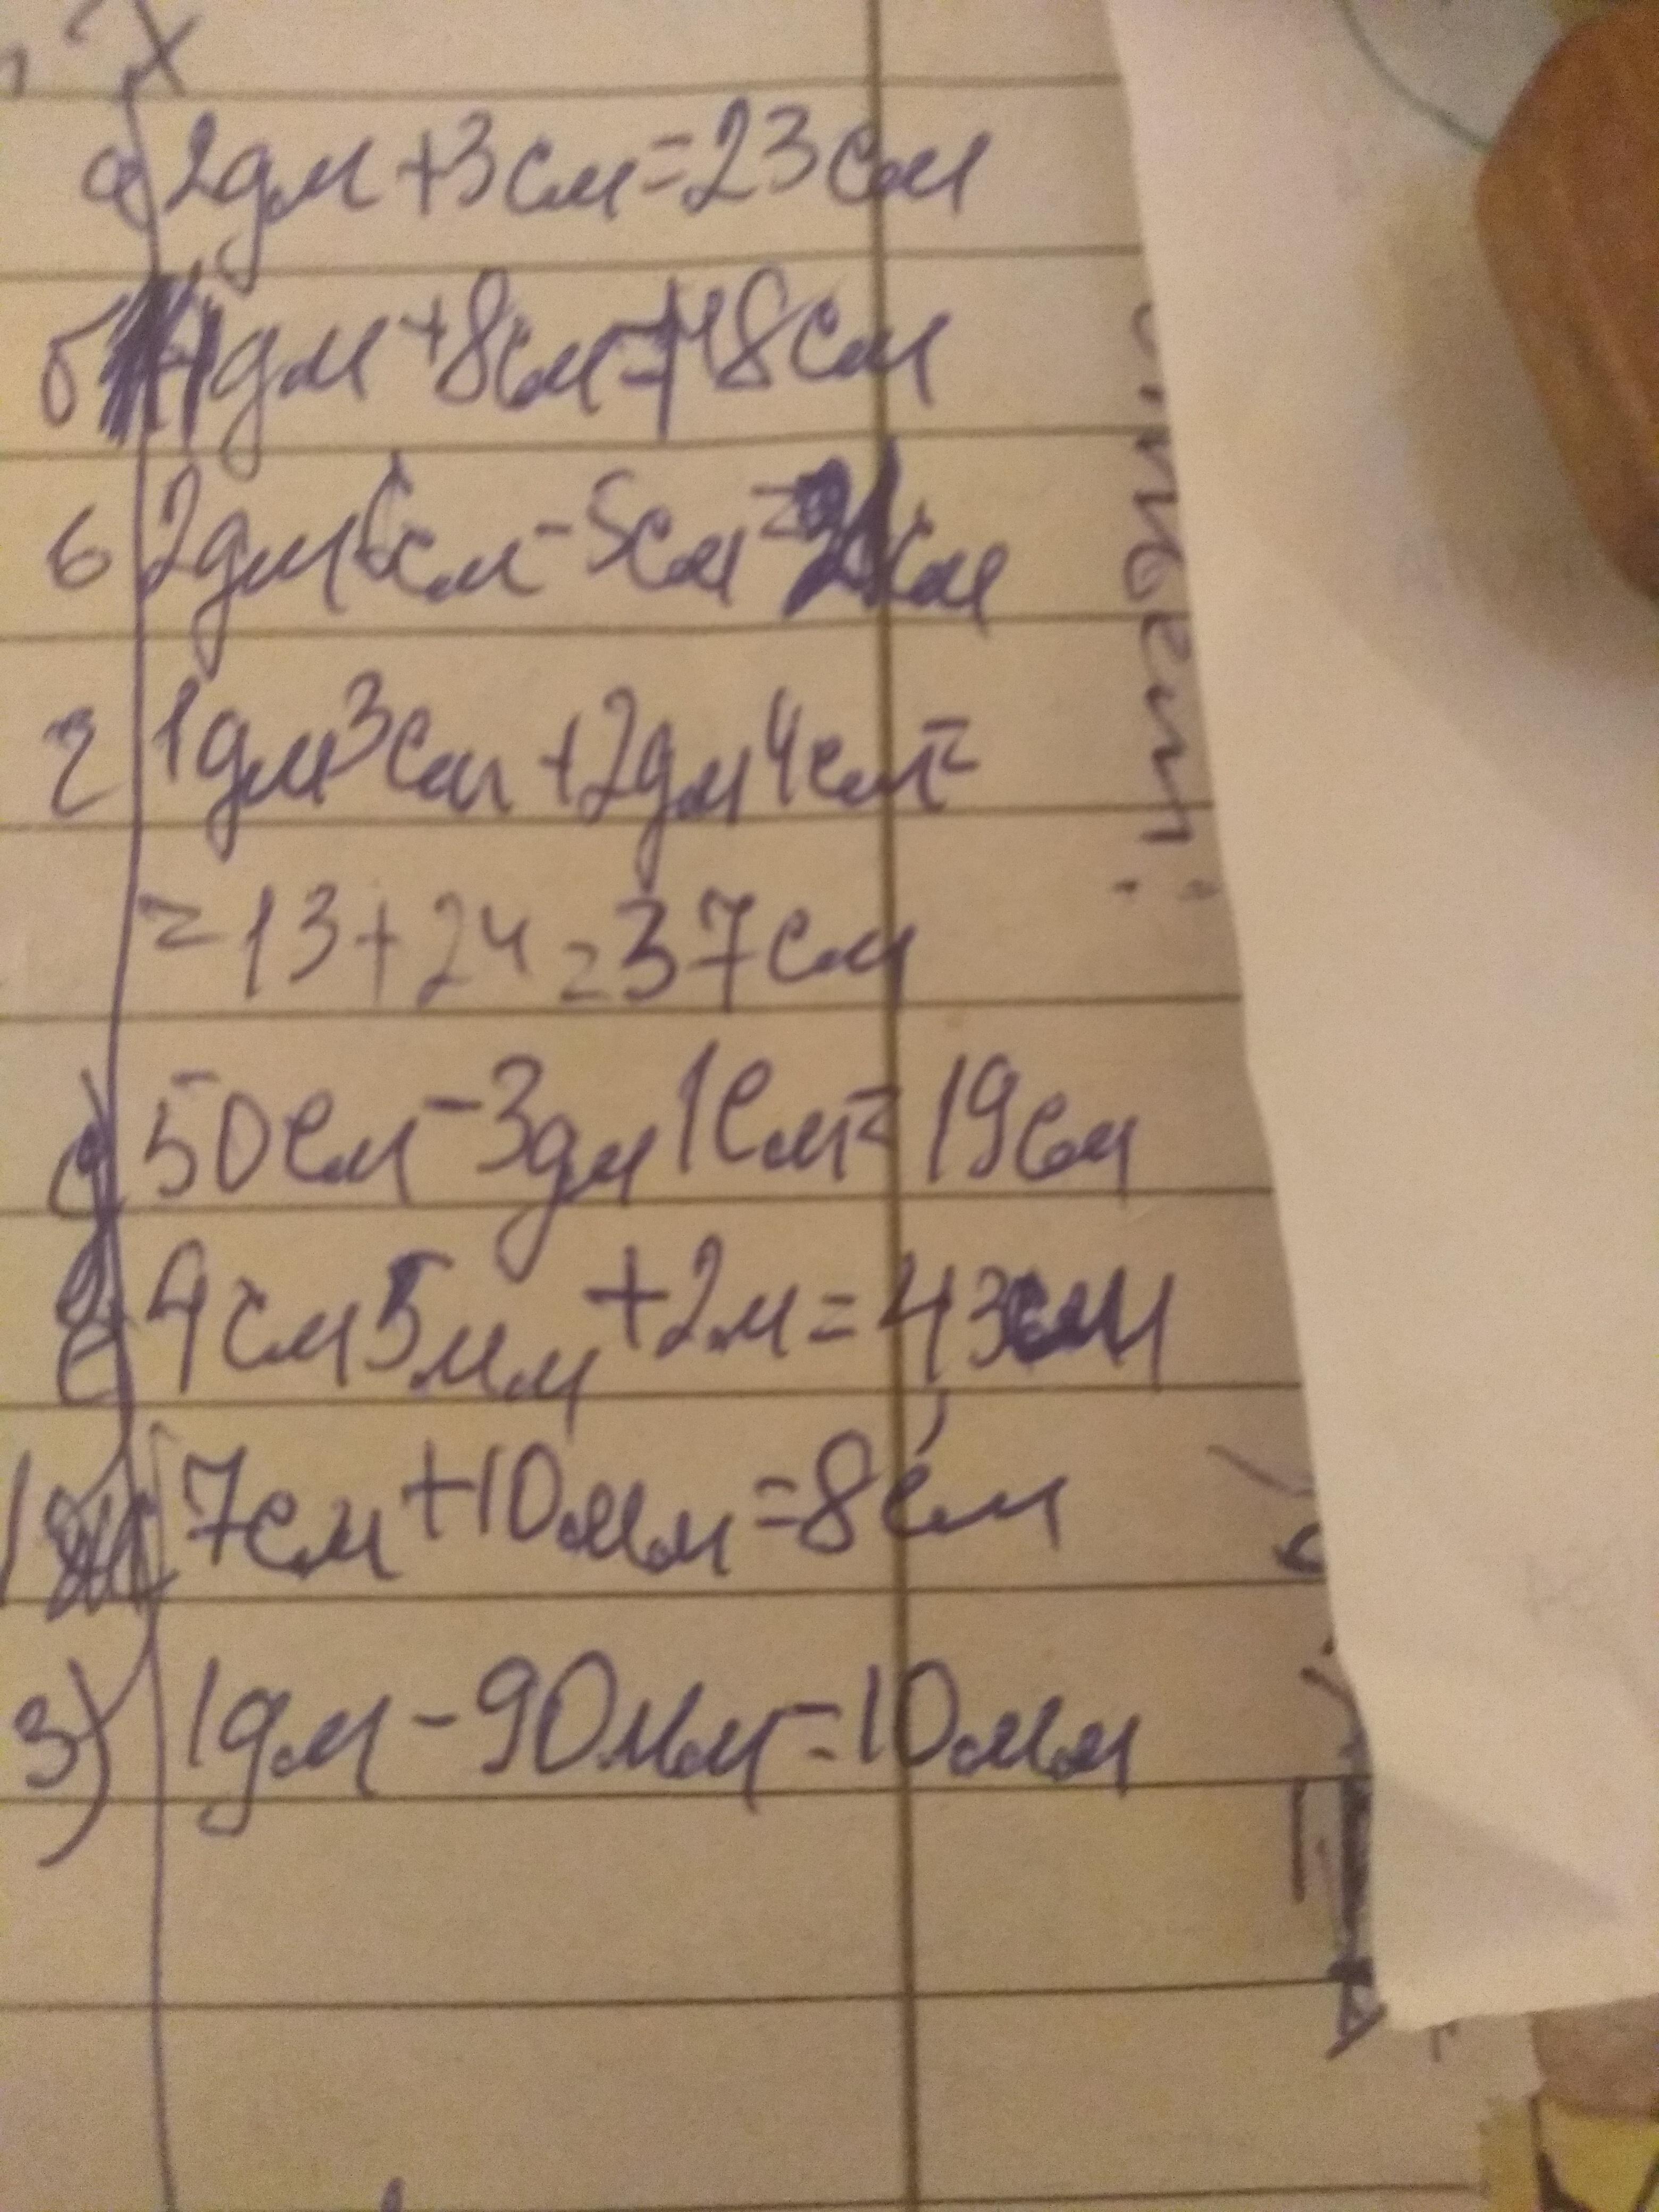 а) 2дм + 3см = 23см
б) 4дм + 8см = 48см
в 2дм 6см - 5см = 21см
г 1дм 3см + 2дм 4см =
= 13 + 24 = 37см
д) 50см - 3дм 1см = 19см
е 4см 5мм + 2м = 43мм
7см + 10мм = 8см
з) 1дм - 90мм = 10мм